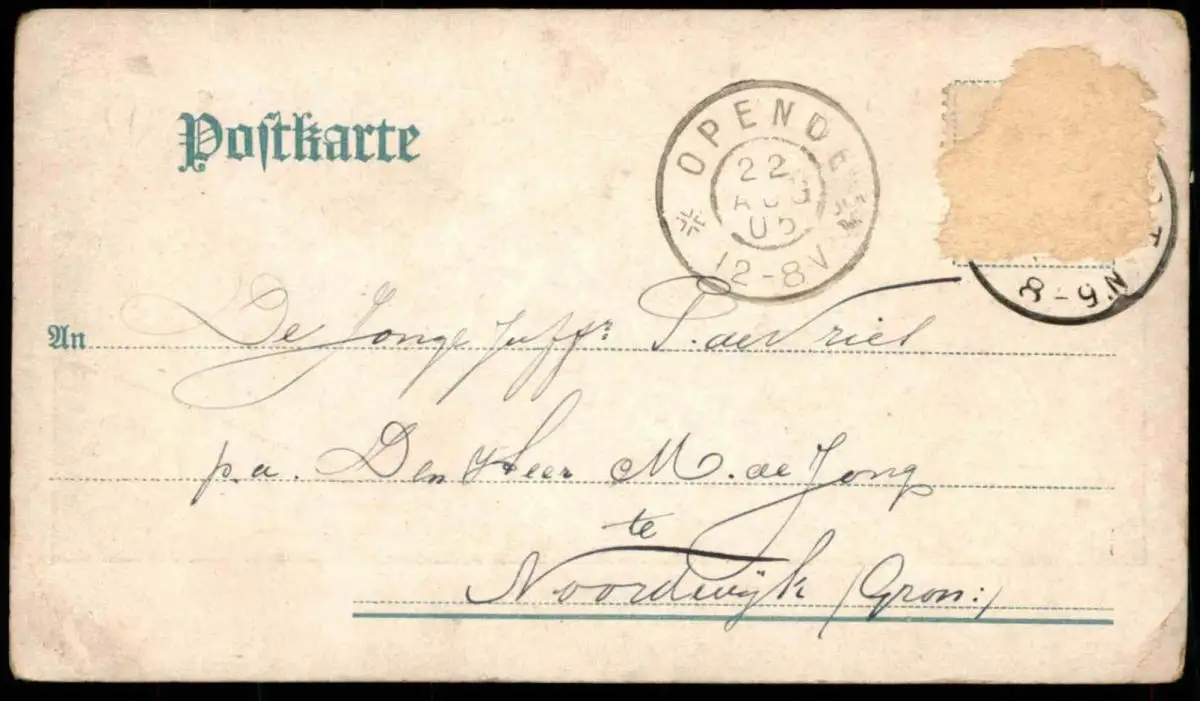 Postkarte
OPENDE
22
AUG
05
12-8V
8-9N
An De Jonge Juffr: P. de Vries
p.a. Den Heer M. de Jong
te
Noordwijk (Gron:)